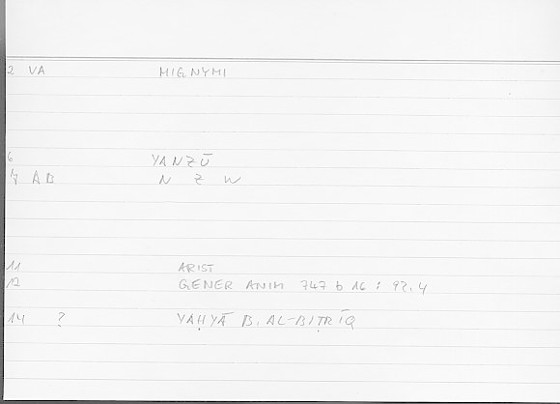 2 VA MIGNYMI
6 YANZŪ
7 AB N Z W
11 ARIST
12 GENER ANIM 747 b 16 : 92.4
14 ? YAḤYĀ B. AL-BIṬRĪQ